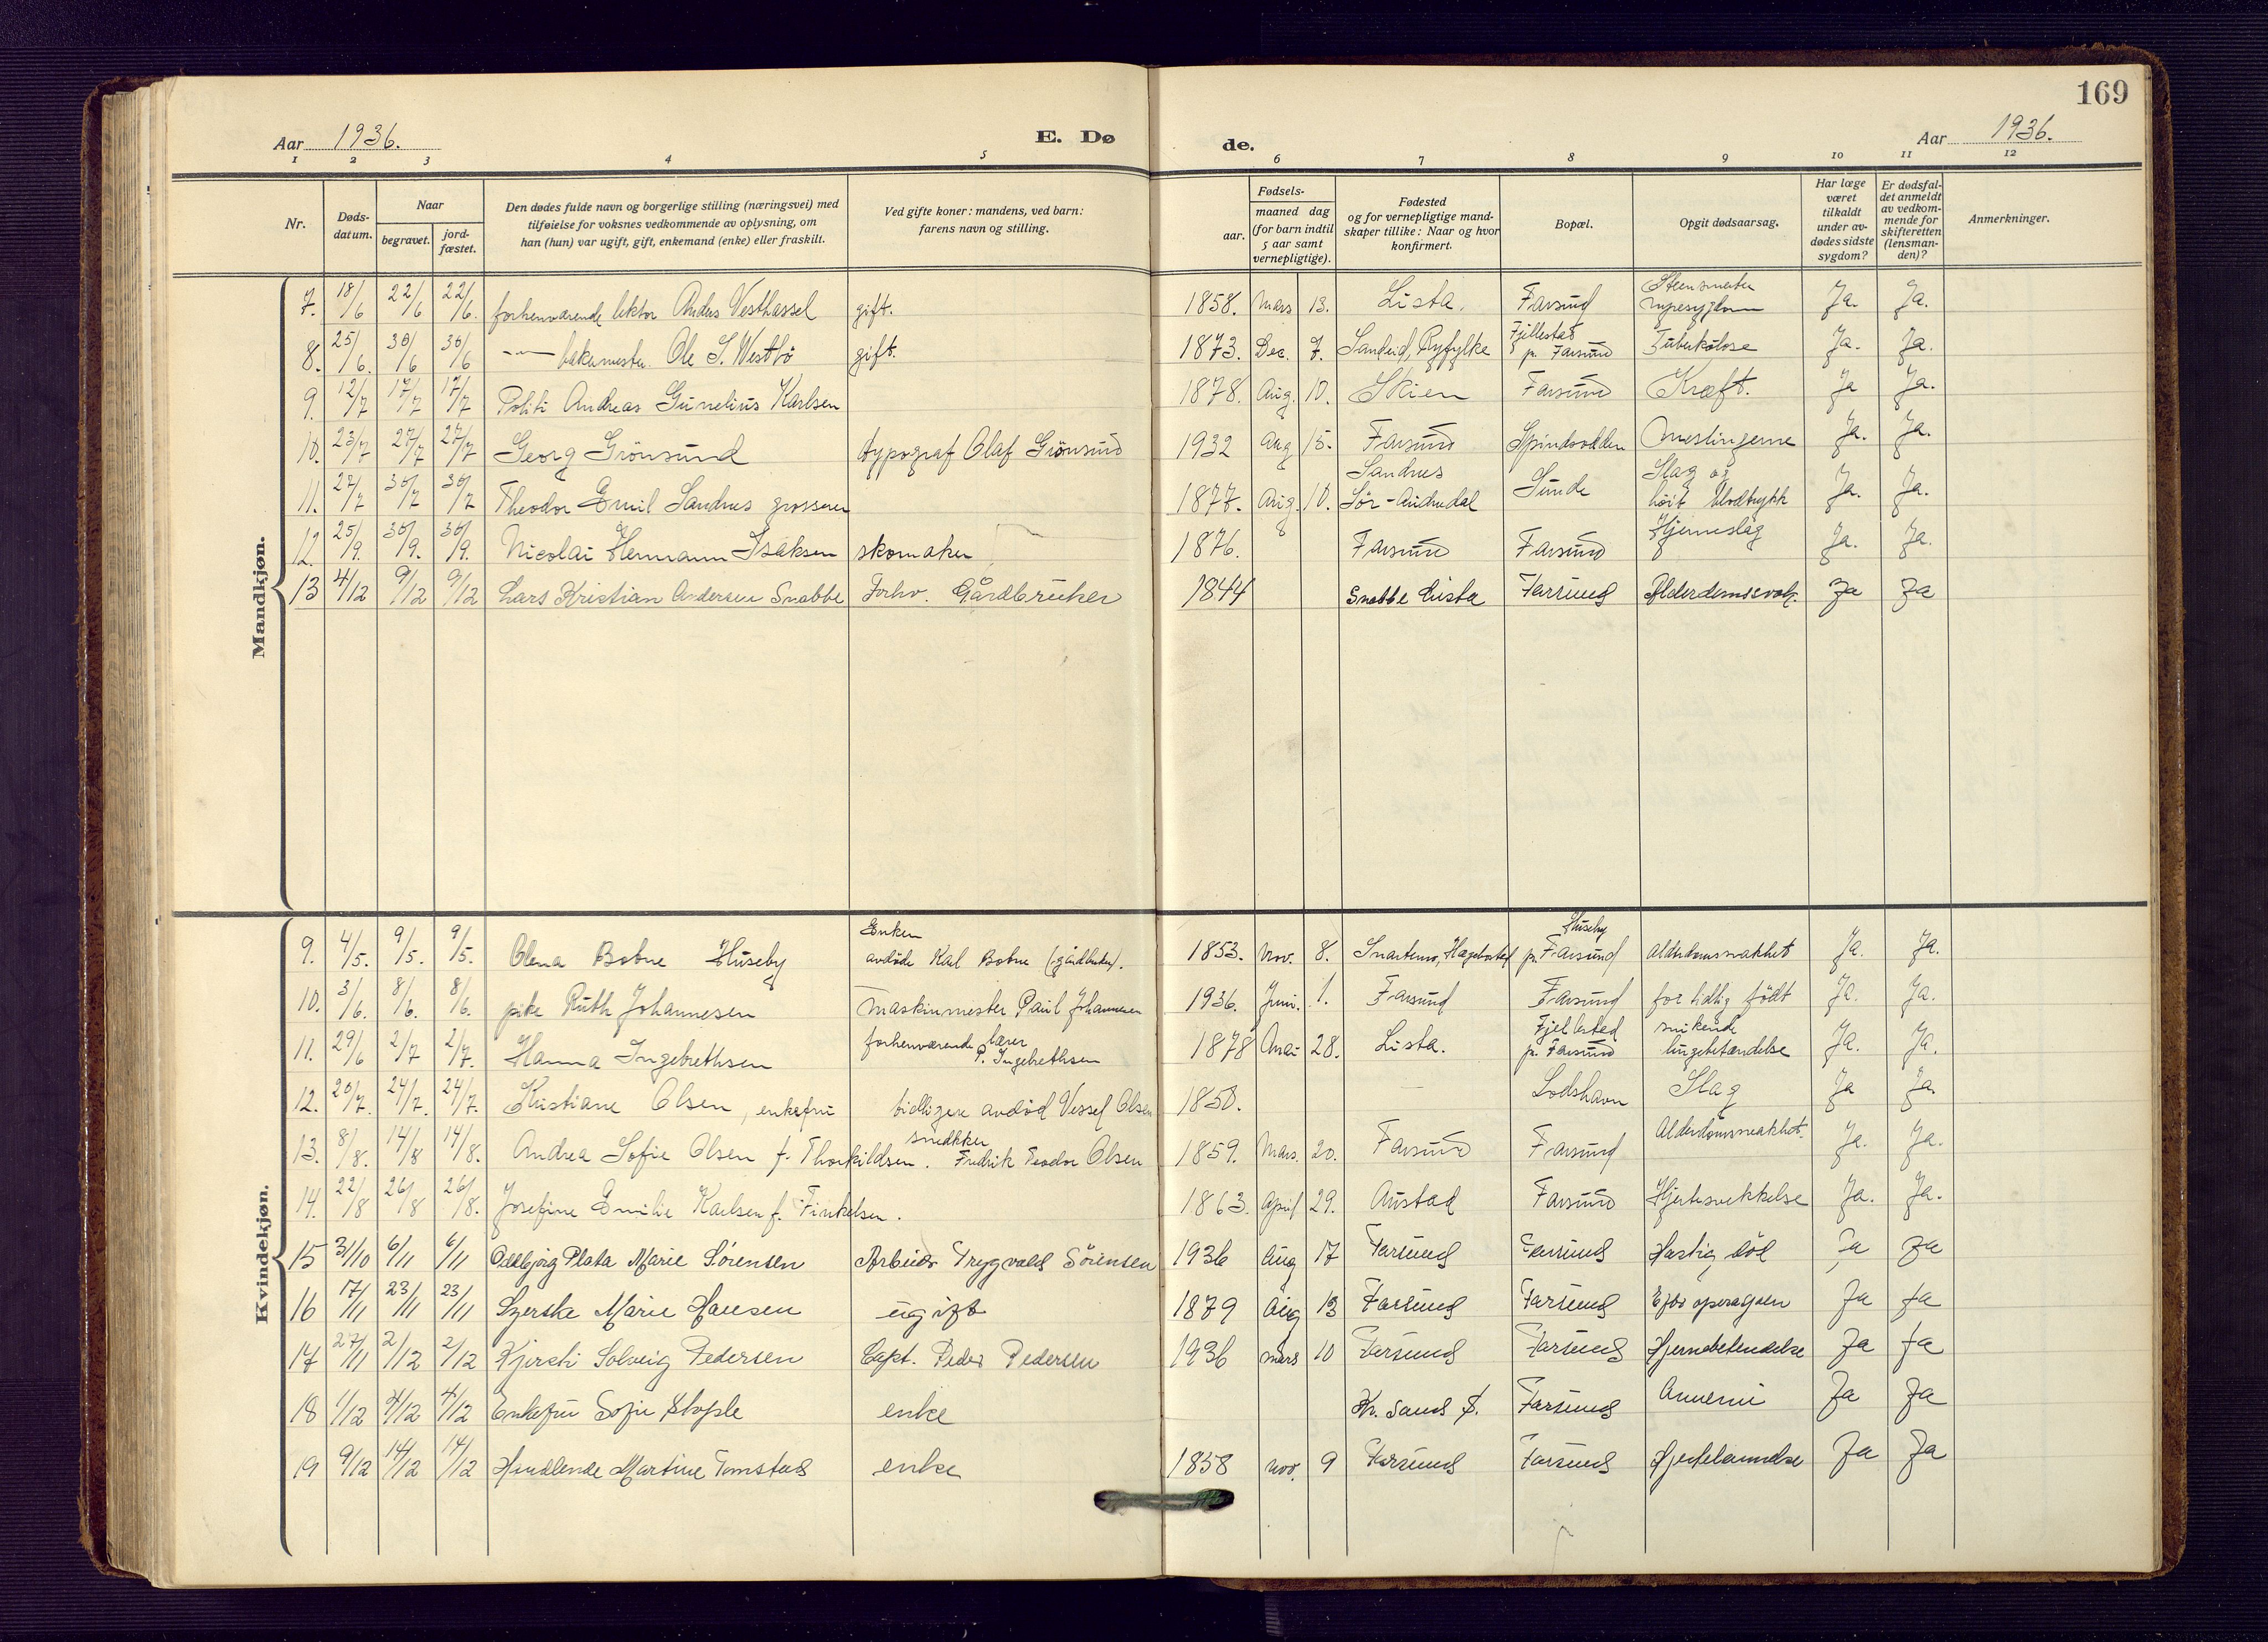 169
Aar 1936. E. Dø de. Aar 1936.
1 2 3 4 5 6 7 8 9 10 11 12
Nr.
Døds-
datum.
Naar
begravet.
jord-
fæstet.
Den dødes fulde navn og borgerlige stilling (næringsvei) med
tilføielse for voksnes vedkommende av oplysning, om
han (hun) var ugift, gift, enkemand (enke) eller fraskilt.
Ved gifte koner: mandens, ved barn:
farens navn og stilling.
Fødsels-
aar.
maaned dag
(for barn indtil
5 aar samt
vernepligtige).
Fødested
og for vernepligtige mand-
skaper tillike: Naar og hvor
konfirmert.
Bopæl.
Opgit dødsaarsag.
Har læge
været
tilkaldt
under av-
dødes sidste
sygdom?
Er dødsfal-
det anmeldt
av vedkom-
mende for
skifteretten
(lensman-
den)?
Anmerkninger.
Mandkjøn.
7. 18/6 22/6 22/6. forhenværende lektor Anders Vesthassel gift. 1858. Mars 13. Lista. Farsund nyresygdom Ja. Ja.
8. 25/6. 30/6 30/6 —"— bakermester Ole S. Westbö gift. 1873. Dec. 7. Sandeid, Ryfylke Fjellestad p. Farsund Tuberkulose Ja. Ja.
9. 12/7 17/7 17/7 Politi Andreas Gunelius Karlsen 1878. Aug. 10. Skien Farsund Kræft. Ja Ja.
10. 23/7 27/7 27/7 Georg Grönsund typograf Olaf Grönsund 1932 Aug 15. Farsund Spindsodden Meslingerne Ja. Ja.
11. 27/7 30/7 30/7 Theodor Emil Sandnes grosserer 1877. Aug. 10. Sandnes Sør-Audnedal Sunde Slag og høit blodtrykk Ja. Ja.
12. 25/9. 30/9. 30/9. Nicolai Hermann Isaksen skomaker 1876. Farsund Farsund Hjerneslag Ja. Ja.
13 4/12 9/12 9/12 Lars Kristian Andersen Snabbe Forhv. Gårdbruker 1844 Snabbe Lista Farsund Alderdomssvak. Ja Ja
Kvindekjøn.
9. 4/5. 9/5. 9/5. Olena Botne Huseby Enken avdöde Karl Botne (gårdbruker). 1853. Nov. 8. Snartemo, Hægebostad Huseby p. Farsund Alderdomssvakhet Ja. Ja.
10. 3/6. 8/6. 8/6. pike Ruth Johannesen Maskinmester Paul Johannesen 1936. Juni. 1. Farsund Farsund for tidlig födt Ja. Ja.
11. 29/6 2/7 2/7. Hanna Ingebrethsen forhenværende lærer P. Ingebrethsen 1878 Mai 28. Lista. Fjellestad p. Farsund snikende lungebetændelse Ja. Ja.
12. 20/7. 24/7. 24/7. Kristiane Olsen, enkefru tidligere avdöd Vessel Olsen 1850. Lodshavn Slag Ja Ja.
13. 8/8. 14/8 14/8. Andrea Sofie Olsen f. Thorkildsen. snedkker Fredrik Teodor Olsen 1859. Mars. 20. Farsund Farsund Alderdomssvakhet. Ja. Ja.
14. 22/8 26/8 26/8. Josefine Emilie Karlsen f. Finkelsen. 1863. April 29. Austad Farsund Hjertesvekkelse Ja. Ja.
15 31/10 6/11 6/11 Oddbjörg Plata Marie Sörensen Arbeider Trygvald Sörensen 1936 Aug 17 Farsund Farsund Hastig död Ja Ja
16 17/11 23/11 23/11 Marie Hansen ugift 1879 Aug 13 Farsund Farsund Efter operasjon Ja Ja
17 27/11 2/12 2/12 Kjersti Solveig Pedersen Capt. Peder Pedersen 1936 mars 10 Farsund Farsund Hjernebetendelse Ja Ja
18 1/12 4/12 4/12 Enkefru Sofie Stople enke Kr. sand S. Farsund Annemi Ja Ja
19 9/12 14/12 14/12 Handlende Martine Tomstad enke 1858 nov. 9 Farsund Farsund Hjertelammelse Ja Ja